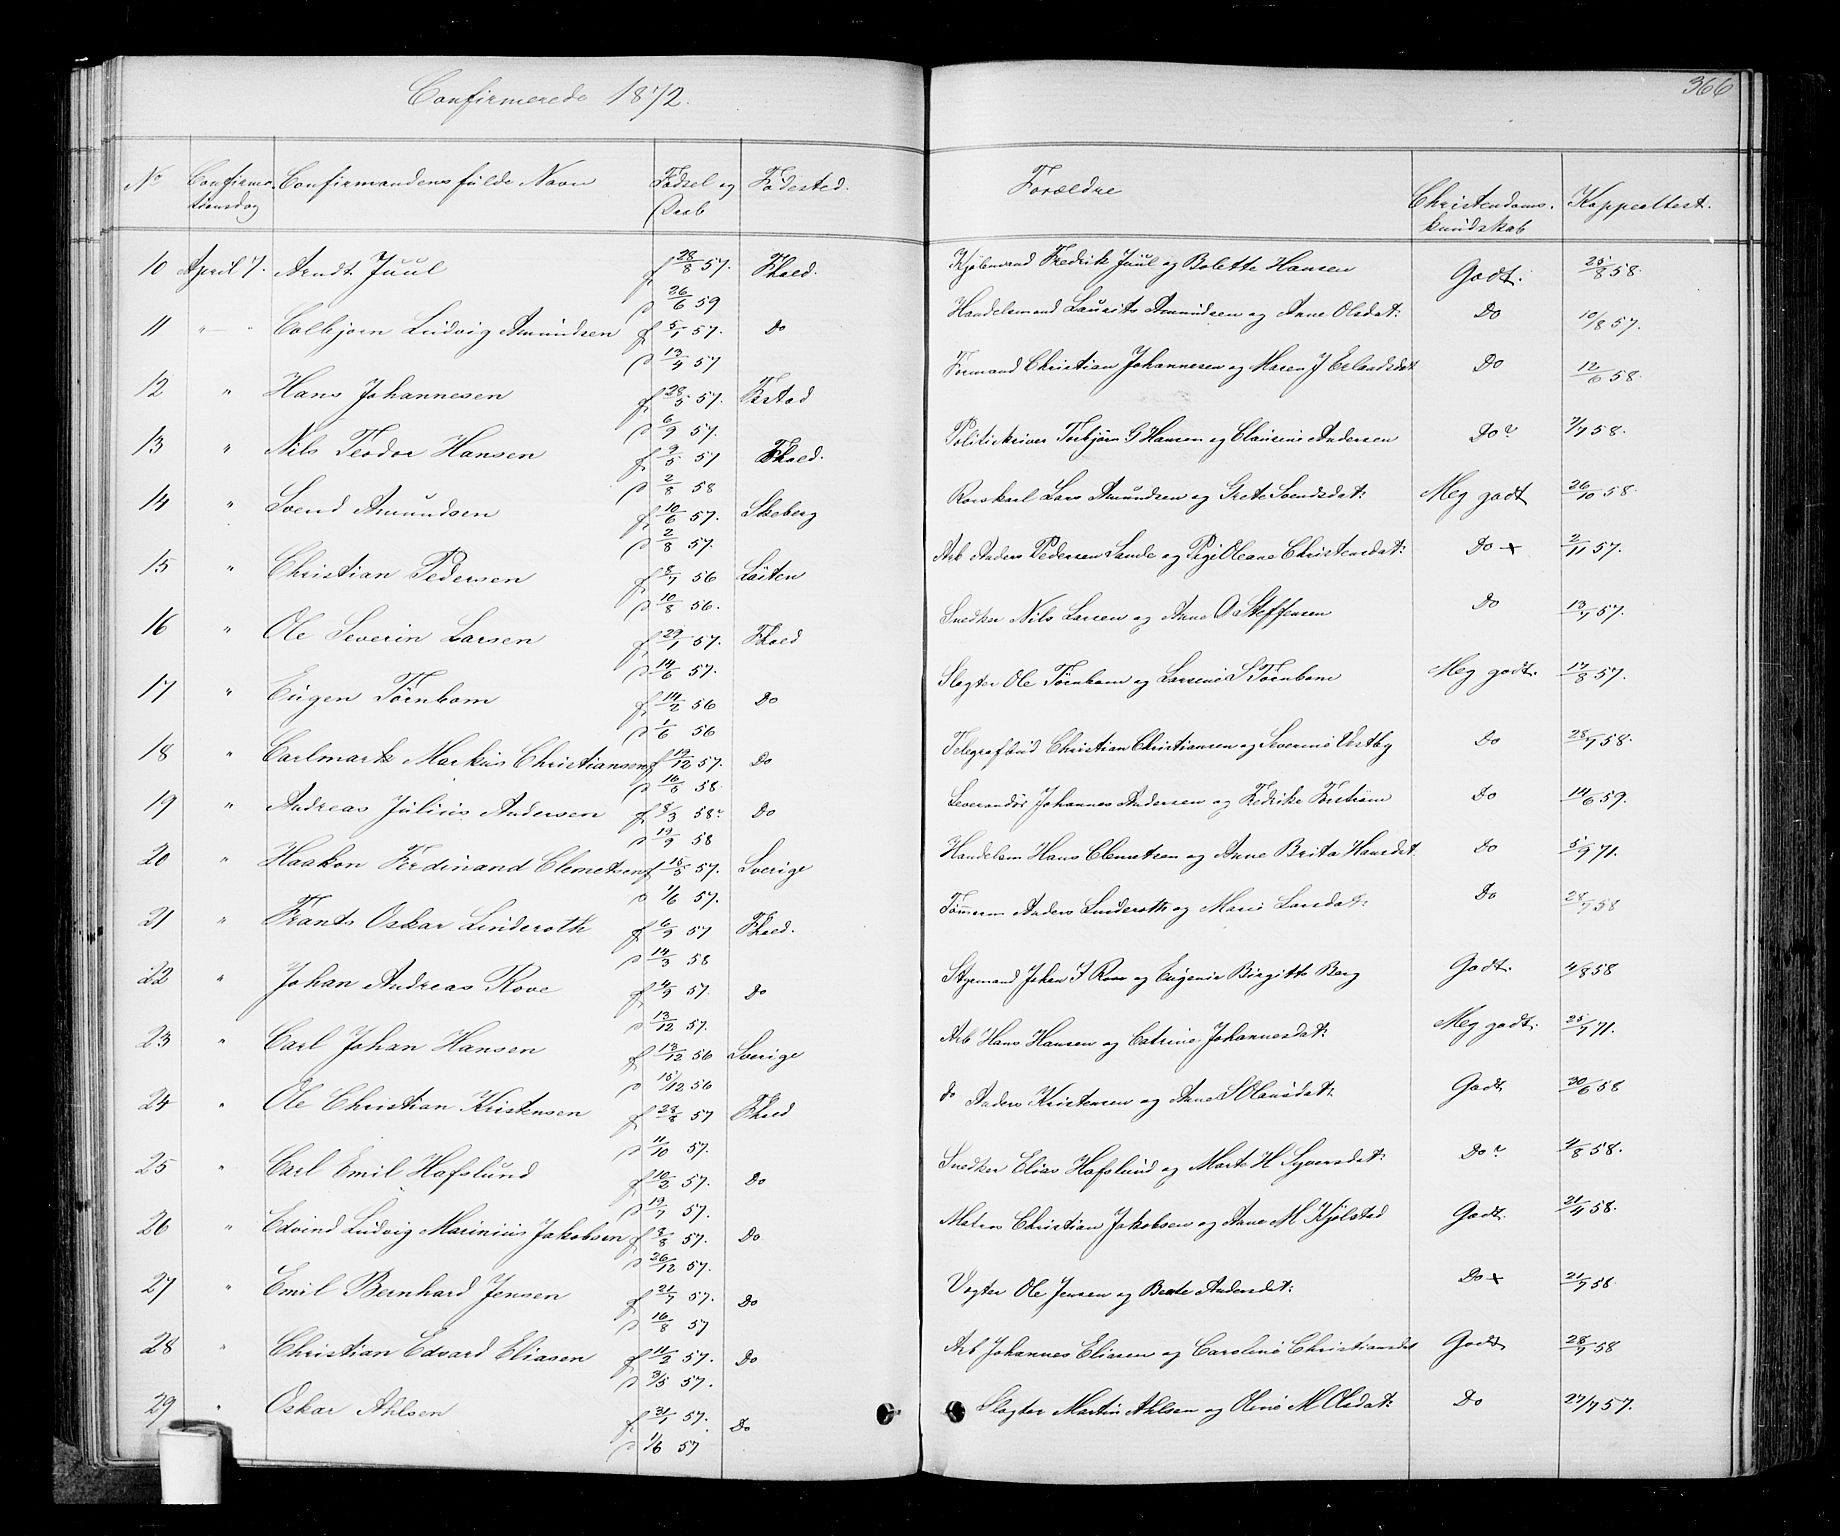 Confirmerede 1872.
366
No Confirmationsdag Confirmandens fulde Navn Fødsel og Daab Fødested. Forældre Christendomskundskab Koppeattest.
10 April 7. Arndt Juul f 28/8 57. d 26/6 59 Fhald. Fredrik Juul og Bolette Hansen Godt. 25/8 58.
11 " Colbjørn Ludvig Amundsen f 5/1 57. d 13/4 57 Do Handelsmand Laurits Amundsen og Anne Olsdat: Do 10/8 57.
12 " Hans Johannesen f 28/5 57. d 6/9 57. Formand Christian Johannesen og Maren J Erlandsdat Do 12/6 58.
13 " Nils Teodor Hansen f 2/5 57 d 2/8 58 Fhald. Politiskriver Torbjørn G Hansen og Clausine Andersen Do 58.
14 " Svend Amundsen f 10/6 57. d 2/8 57. Skeberg Lars Amundsen og Grete Svendsdat: Meg godt 26/10 58.
15 " Christian Pedersen f 8/7 56 d 10/8 56. Löiten Arb Anders Pedersen Sande og Pige Oleane Christensdat: Do x 2/11 57.
16 " Ole Severin Larsen f 29/1 57. d 14/6 57. Fhald Snedker Nils Larsen og Anne O Steffensen Do 13/7 57.
17 " Eugen Törnbom f 14/2 56 d 1/6 56 Do Slagter Ole Törnbom og Larsine S Törnbom Meg godt. 17/8 57.
18 " Carlmark Markus Christiansen f 19/12 57. d 16/5 58. Do Telegrafbud Christian Christiansen og Severine Vestby Do 28/7 58.
19 " Andreas Julius Andersen f 8/3 58 d 19/9 58 Do Leverandör Johannes Andersen og Fredrike Do 14/6 59.
20 " Haakon Ferdinand Clemetsen f 15/5 57. d 1/6 57. Sverige Handelsm Hans Clemetsen og Anne Brita Hansdat Do 5/9 71.
21 " Frants Oskar Linderoth f 6/9 57 d 14/3 58 Fhald. Tømmerm Anders Linderoth og Marie Larsdat: Do 28/7 58
22 " Johan Andreas Rove f 4/9 57. d 13/12 57. Do Styrmand Johan F Rove og Eugenie Birgitte Berg Godt. 4/8 58
23 " Carl Johan Hansen f 13/12 56 d 15/12 56 Sverige Arb Hans Hansen og Catrine Johannesdat: Meg godt. 25/7 71.
24 " Ole Christian Kristensen f 28/8 57 d 11/10 57. Fhald do Anders Kristensen og Anne S Olausdat: Godt 30/6 58
25 " Carl Emil Hafslund f 10/2 57. d 19/7 57. Do Snedker Elias Hafslund og Marte H Syversdat: Do 4/8 58.
26 " Edvind Ludvig Marinius Jakobsen f 8/8 57. d 26/12 57. Do Matros Christian Jakobsen og Anne M Kjølstad Godt. 21/4 58.
27 " Emil Bernhard Jensen f 21/7 57. d 16/8 57 Do Vogter Ole Jensen og Beate Andersdat: Do x 21/7 58.
28 " Christian Edvard Eliasen f 11/2 57. d 3/5 57. Do Arb Johannes Eliasen og Caroline Christiansdat Godt 28/7 58
29 " Oskar Ahlsen f 31/1 57. d 1/6 57 Do Slagter Martin Ahlsen og Oline M Olsdat: Do 27/7 57.